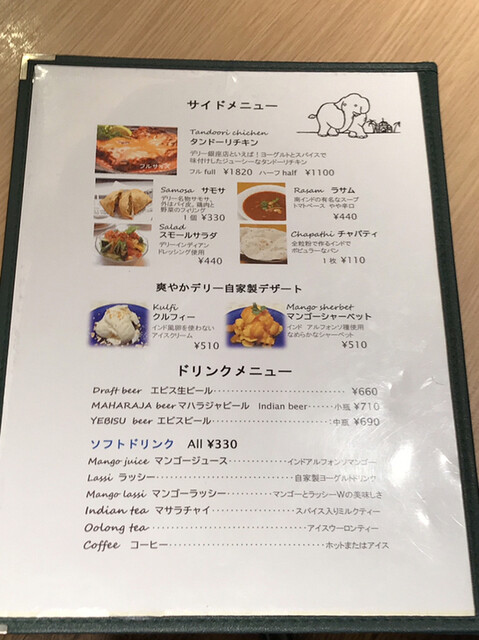 サイドメニュー
Tandoori chichen
タンドーリチキン
デリー銀座店といえば！ヨーグルトとスパイスで
味付けしたジューシーなタンドーリチキン
フル full ¥1820 ハーフ half ¥1100
フルサイズ
Samosa サモサ
デリー名物サモサ。
外はパイ皮、鶏肉と
野菜のフィリング
1個 ¥330
Rasam ラサム
南インドの有名なスープ
トマトベース やや辛口
¥440
Salad
スモールサラダ
デリーインディアン
ドレッシング使用
¥440
Chapathi チャパティ
全粒粉で作るインドで
ポピュラーなパン
1枚 ¥110
爽やかデリー自家製デザート
Kulfi
クルフィー
インド風卵を使わない
アイスクリーム
¥510
Mango sherbet
マンゴーシャーベット
インド アルフォンソ種使用
なめらかなシャーベット
¥510
ドリンクメニュー
Draft beer エビス生ビール ¥660
MAHARAJA beer マハラジャビール Indian beer 小瓶 ¥710
YEBISU beer エビスビール 中瓶 ¥690
ソフトドリンク All ¥330
Mango juice マンゴージュース インドアルフォンソマンゴー
Lassi ラッシー 自家製ヨーグルトドリンク
Mango lassi マンゴーラッシー マンゴーとラッシーWの美味しさ
Indian tea マサラチャイ スパイス入りミルクティー
Oolong tea アイスウーロンティー
Coffee コーヒー ホットまたはアイス